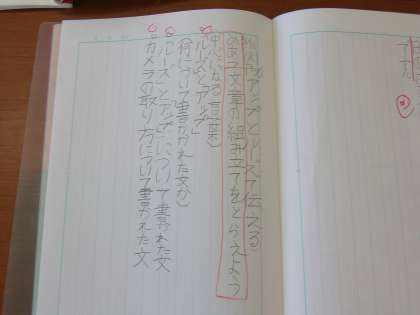 アップとルーズで伝える
め 文章の組み立てをとらえよう
中心になる言葉
ルーズとアップ
(何について書かれた文か)
「ルーズ」と「アップ」について書かれた文
カメラの取り方について書かれた文
です。